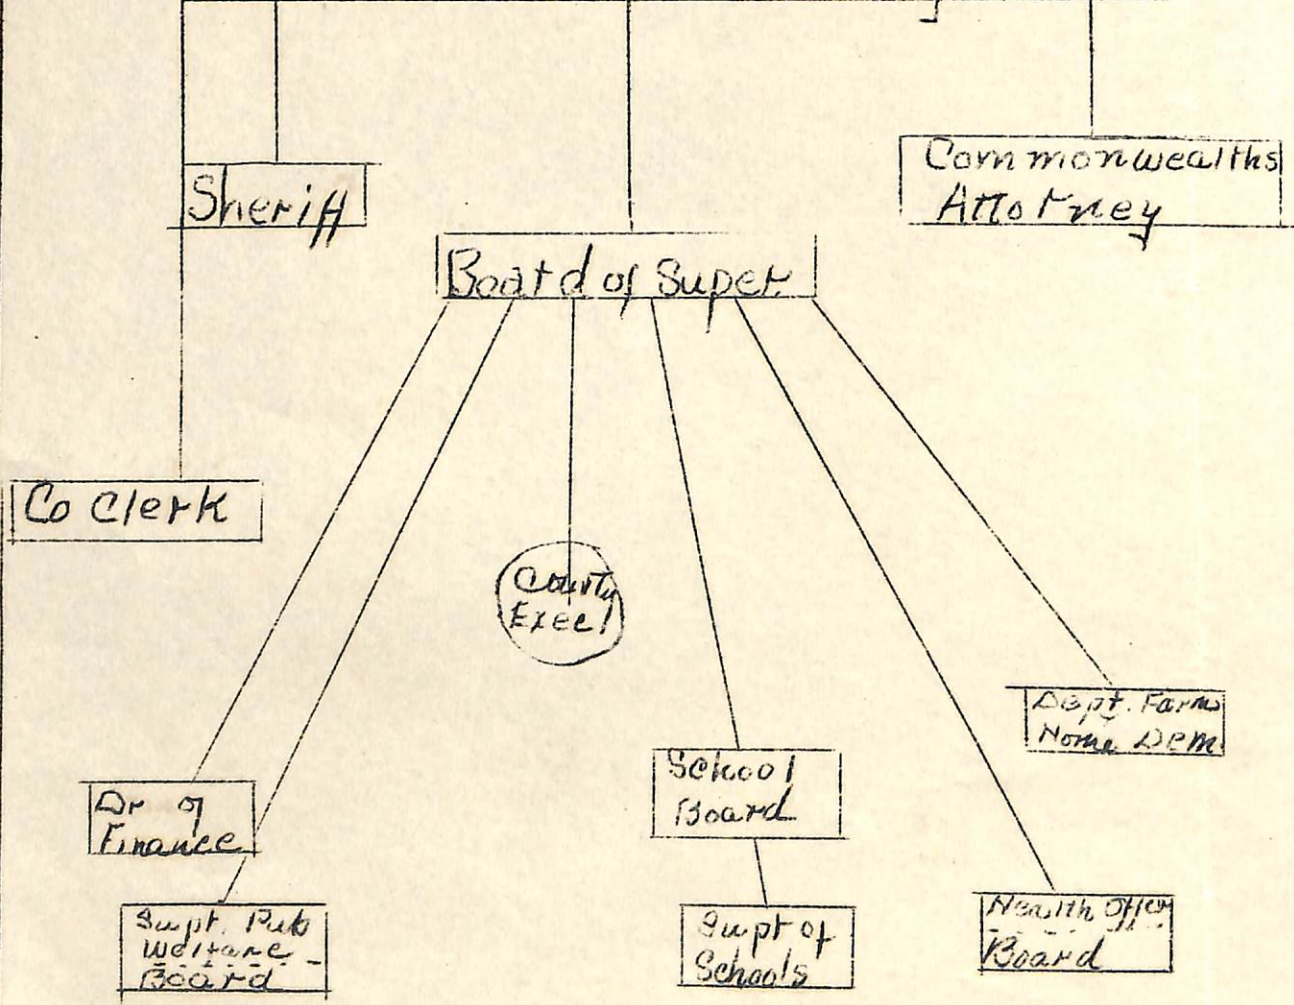 Commonwealths
Attorney
Sheriff
Board of Super.
Co Clerk
County
Exec!
Dept. Farm
Home Dem.
School
Board
Dr of
Finance
Supt. Pub
Welfare
Board
Supt of
Schools
Health Officer
Board